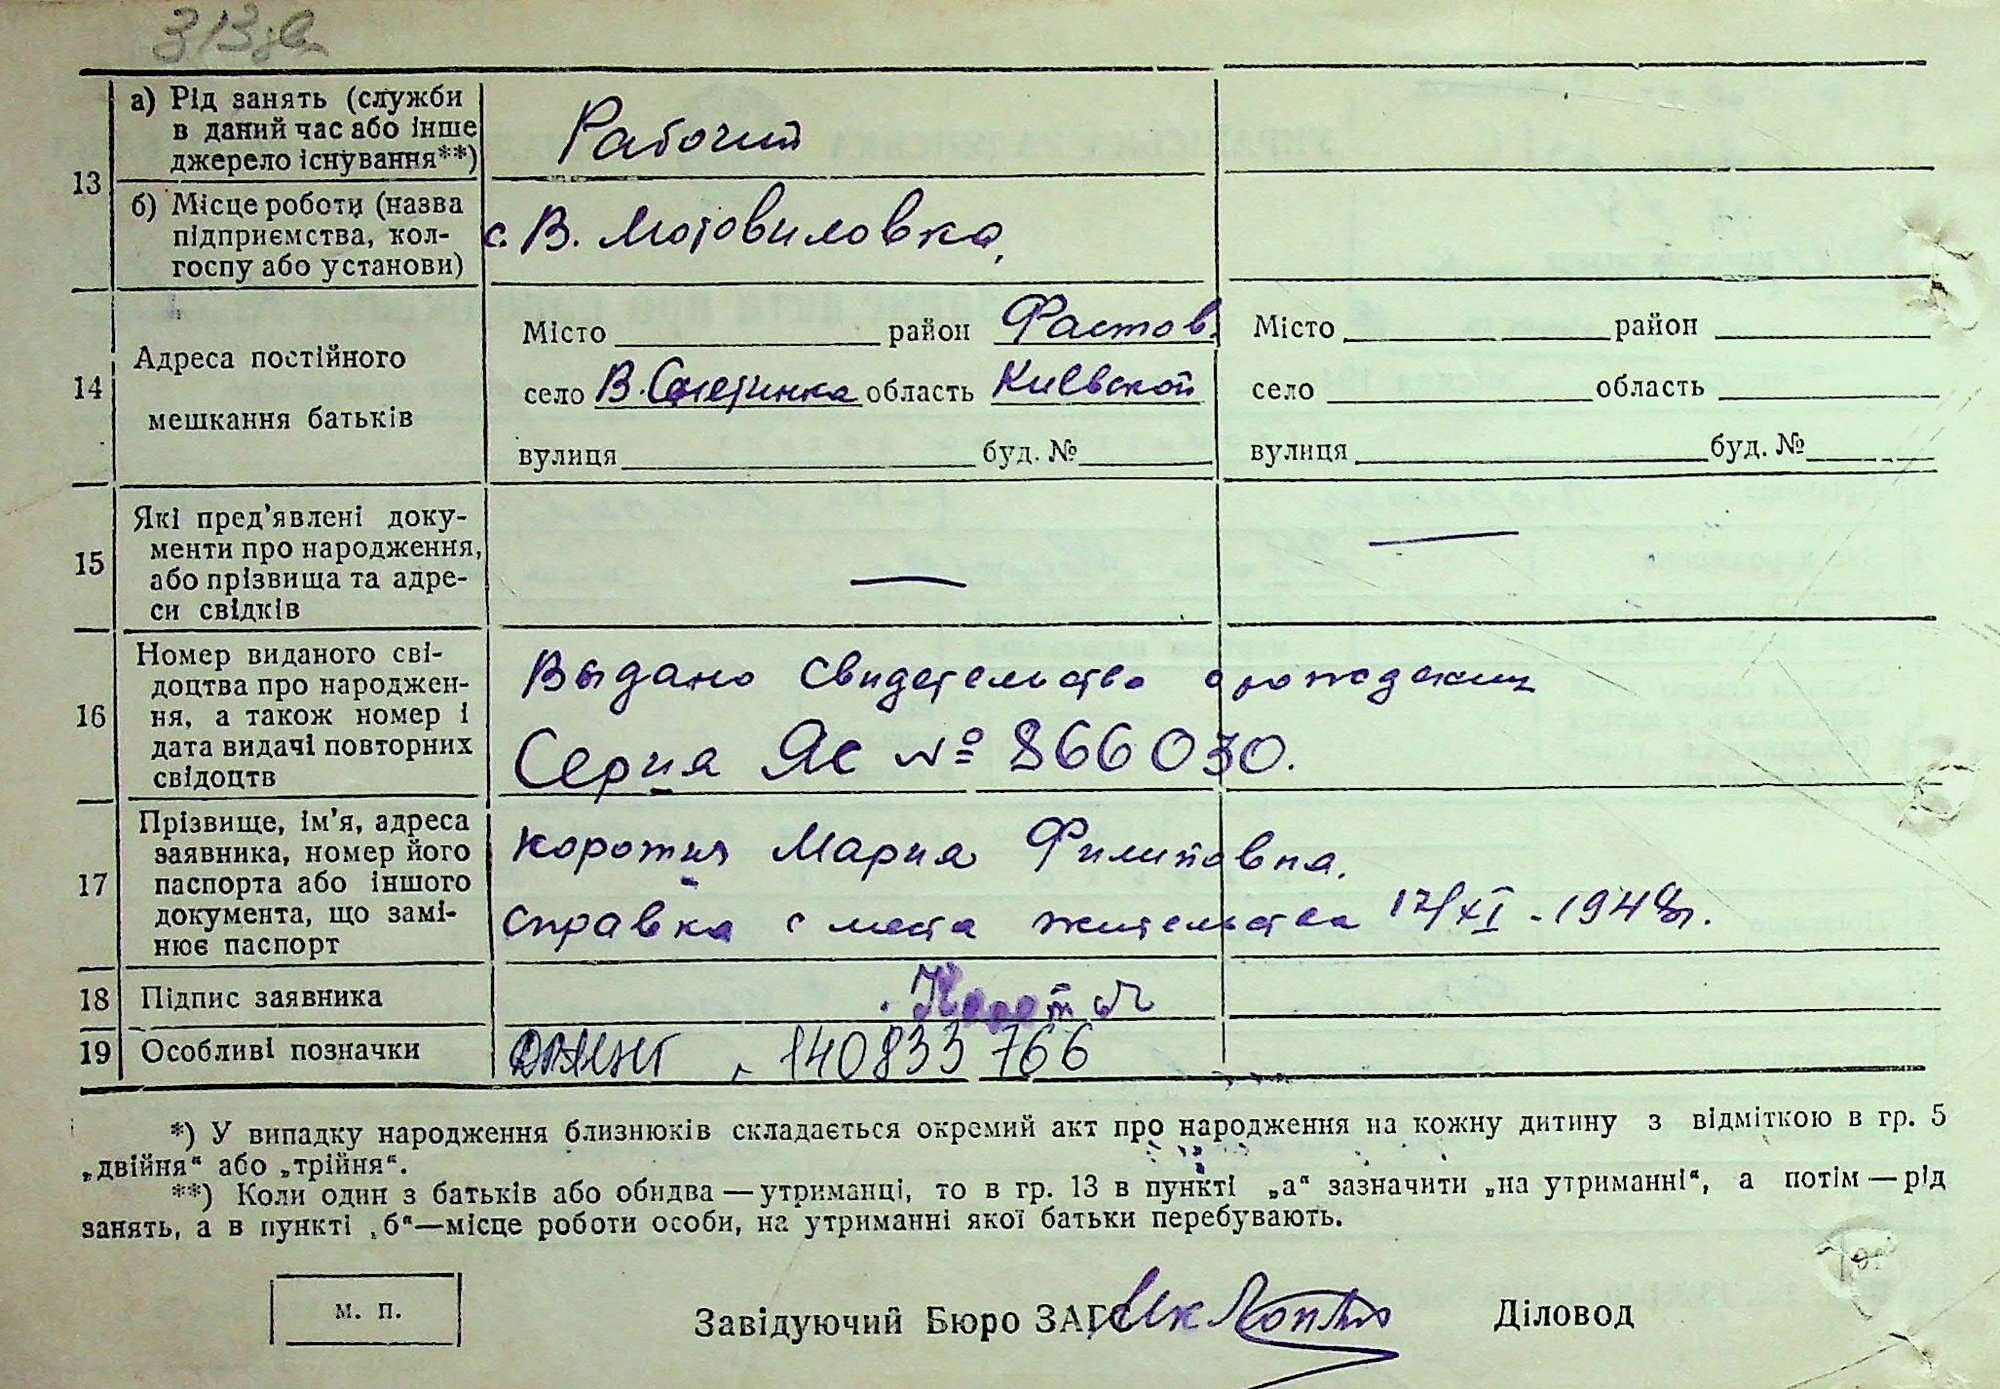 313
13
а) Рід занять (служби
в даний час або інше
джерело існування**)
Рабочий
б) Місце роботи (назва
підприємства, кол-
госпу або установи)
с. В. Мотовиловка,
14
Адреса постійного
мешкання батьків
Місто район Фастов. Місто район
село В. Снетинка область Киевской село область
вулиця буд. № вулиця буд. №
15
Які пред'явлені доку-
менти про народження,
або прізвища та адре-
си свідків
— —
16
Номер виданого сві-
доцтва про народжен-
ня, а також номер і
дата видачі повторних
свідоцтв
Выдано свидетельство о рождении
Серия ЯС № 866030.
17
Прізвище, ім'я, адреса
заявника, номер його
паспорта або іншого
документа, що замі-
нює паспорт
Коротия Мария Филиповна.
справка с места жительства 12/XI - 1948г.
18 Підпис заявника
19 Особливі позначки 140833766
*) У випадку народження близнюків складається окремий акт про народження на кожну дитину з відміткою в гр. 5
„двійня" або „трійня".
**) Коли один з батьків або обидва—утриманці, то в гр. 13 в пункті „а" зазначити „на утриманні", а потім—рід
занять, а в пункті „б"—місце роботи особи, на утриманні якої батьки перебувають.
м. п.
Завідуючий Бюро ЗАГС Діловод